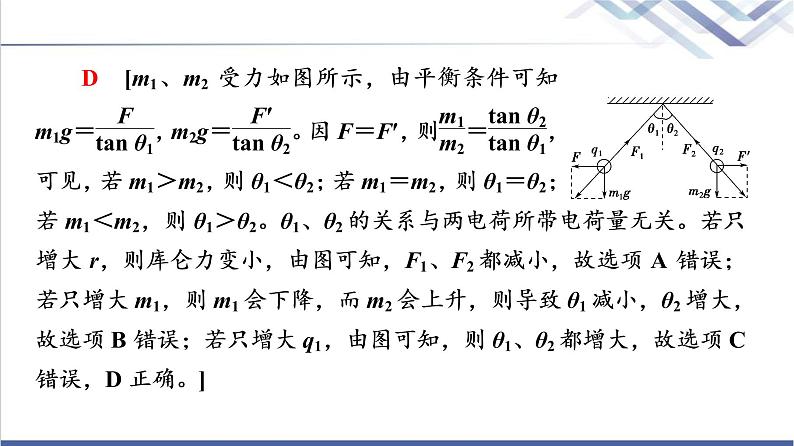 D [m₁、m₂ 受力如图所示，由平衡条件可知
m₁g＝F/tan θ₁，m₂g＝F′/tan θ₂。因 F＝F′，则m₁/m₂＝tan θ₂/tan θ₁，
可见，若 m₁＞m₂，则 θ₁＜θ₂；若 m₁＝m₂，则 θ₁＝θ₂；
若 m₁＜m₂，则 θ₁＞θ₂。θ₁、θ₂ 的关系与两电荷所带电荷量无关。若只
增大 r，则库仑力变小，由图可知，F₁、F₂ 都减小，故选项 A 错误；
若只增大 m₁，则 m₁ 会下降，而 m₂ 会上升，则导致 θ₁ 减小，θ₂ 增大，
故选项 B 错误；若只增大 q₁，由图可知，则 θ₁、θ₂ 都增大，故选项 C
错误，D 正确。]
θ₁ θ₂
q₁ F₁ F₂ q₂
F F′
m₁g m₂g